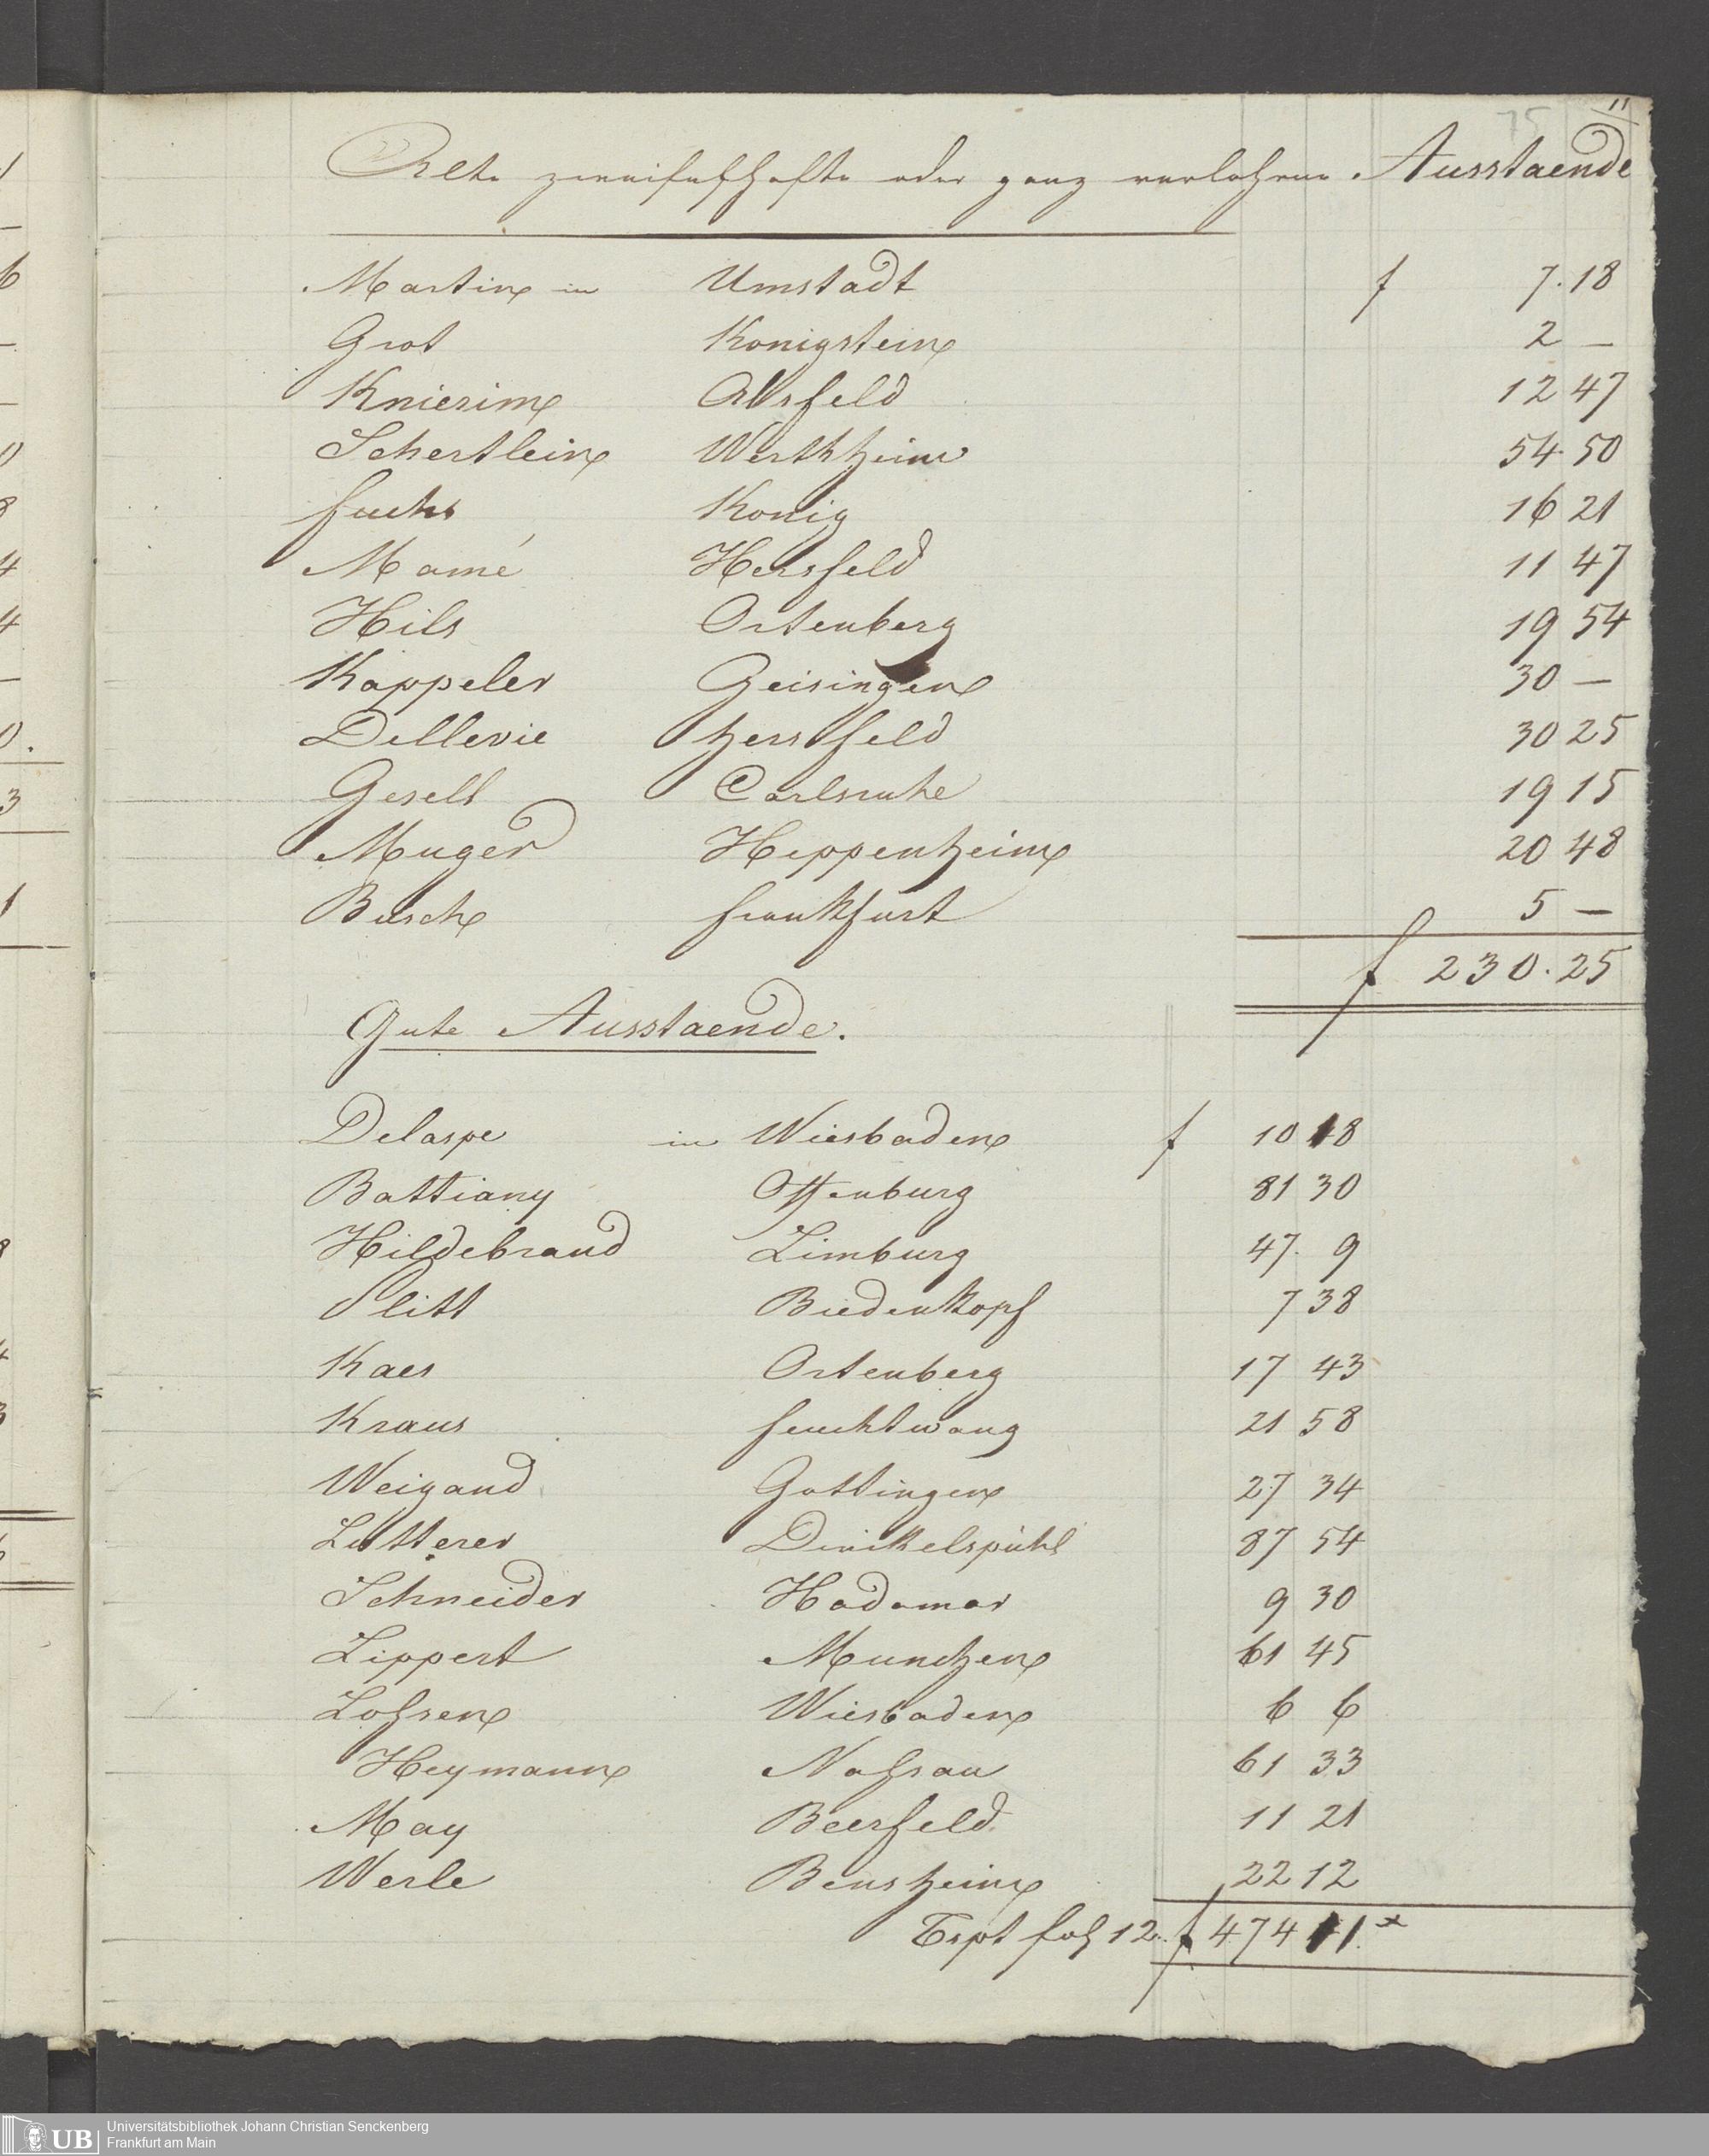 75 11
Alte zweifelhafte oder ganz verlohrne Ausstaende
Martin in Umstadt f 7.18
Grot Konigstein 2 —
Knierim Alsfeld 12 47
Schertlein Werthheim 54.50
Fuchs Konig 16 21
Mamé Hersfeld 11 47
Hils Ortenberg 19 54
Kappeler Geisingen 30 —
Dellevie hersfeld 30 25
Gesell Carlsruhe 19 15
Muger Heppenheim 20 48
Busch Frankfurt 5 —
f 230.25
Gute Ausstaende.
Delaspe in Wiesbaden f 10 18
Battiany Offenburg 81 30
Hildebrand Limburg 47. 9
Plitt Biedenkopf 7 38
Kaes Ortenberg 17 43
Kraus Feuchtwang 21 58
Weigand Gottingen 27 34
Lutterer Dinkelspühl 87 54
Schneider Hadamar 9 30
Lippert Munchen 61 45
Loßsen Wiesbaden 6 6
Heymann Naßau 61 33
May Beerfeld 11 21
Werle Bensheim 22 12
Trspt fol 12. f 474 11 x
UB Universitätsbibliothek Johann Christian Senckenberg
Frankfurt am Main